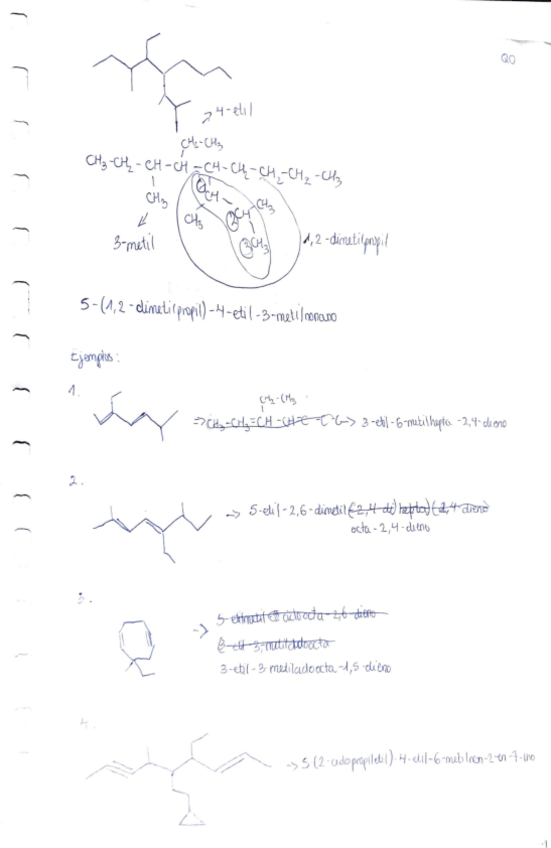 QO
4-etil
CH2-CH3
CH3-CH2-CH-CH-CH-CH2-CH2-CH2-CH3
CH3
1
CH
CH3
2
CH
CH3
3
CH3
3-metil
1,2-dimetilpropil
5-(1,2-dimetilpropil)-4-etil-3-metilnonano
Ejemplos:
1.
CH2-CH3
=>CH3-CH2=CH-CH=C-C-C-> 3-etil-6-metilhepta-2,4-dieno
2.
-> 5-etil-2,6-dimetil(-2,4-di)hepta)(2,4-dieno
octa-2,4-dieno
3.
-> 5-etilmetil cicloocta-2,6-dieno
2-etil-3-metilcicloocta
3-etil-3 metilcicloocta-1,5-dieno
4.
-> 5(2-ciclopropiletil)-4-etil-6-metilnon-2-en-7-ino